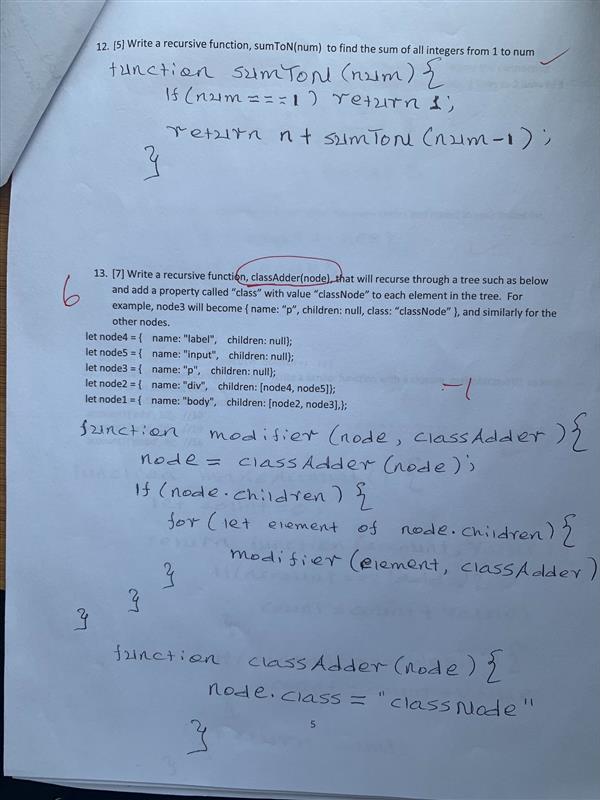 12. [5] Write a recursive function, sumToN(num) to find the sum of all integers from 1 to num
function sumToN(num) {
If (num === 1) return 1;
return n + sumToN (num-1);
}
13. [7] Write a recursive function, classAdder(node), that will recurse through a tree such as below
6
and add a property called "class" with value "classNode" to each element in the tree. For
example, node3 will become { name: "p", children: null, class: "classNode" }, and similarly for the
other nodes.
let node4 = { name: "label", children: null};
let node5 = { name: "input", children: null};
let node3 = { name: "p", children: null};
let node2 = { name: "div", children: [node4, node5]};
-1
let node1 = { name: "body", children: [node2, node3],};
function modifier (node, classAdder) {
node = classAdder (node);
If (node.children) {
for (let element of node.children) {
modifier (element, classAdder)
}
}
}
function classAdder (node) {
node.class = "classNode"
5
}